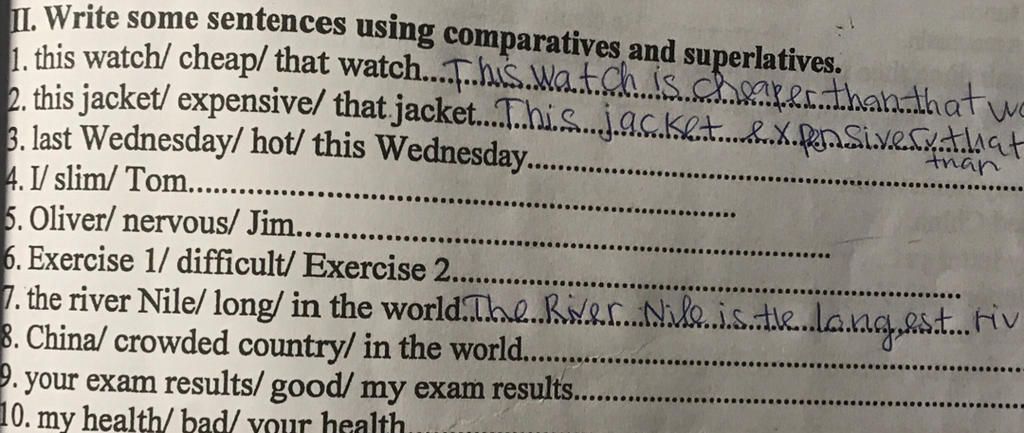 II. Write some sentences using comparatives and superlatives.
1. this watch/ cheap/ that watch....This watch is cheaper than that
2. this jacket/ expensive/ that jacket....This jacket expensivery that
than
3. last Wednesday/ hot/ this Wednesday
4. I/ slim/ Tom
5. Oliver/ nervous/ Jim
6. Exercise 1/ difficult/ Exercise 2
7. the river Nile/ long/ in the world The River Nile is the longest riv
8. China/ crowded country/ in the world
9. your exam results/ good/ my exam results
10. my health/ bad/ your health